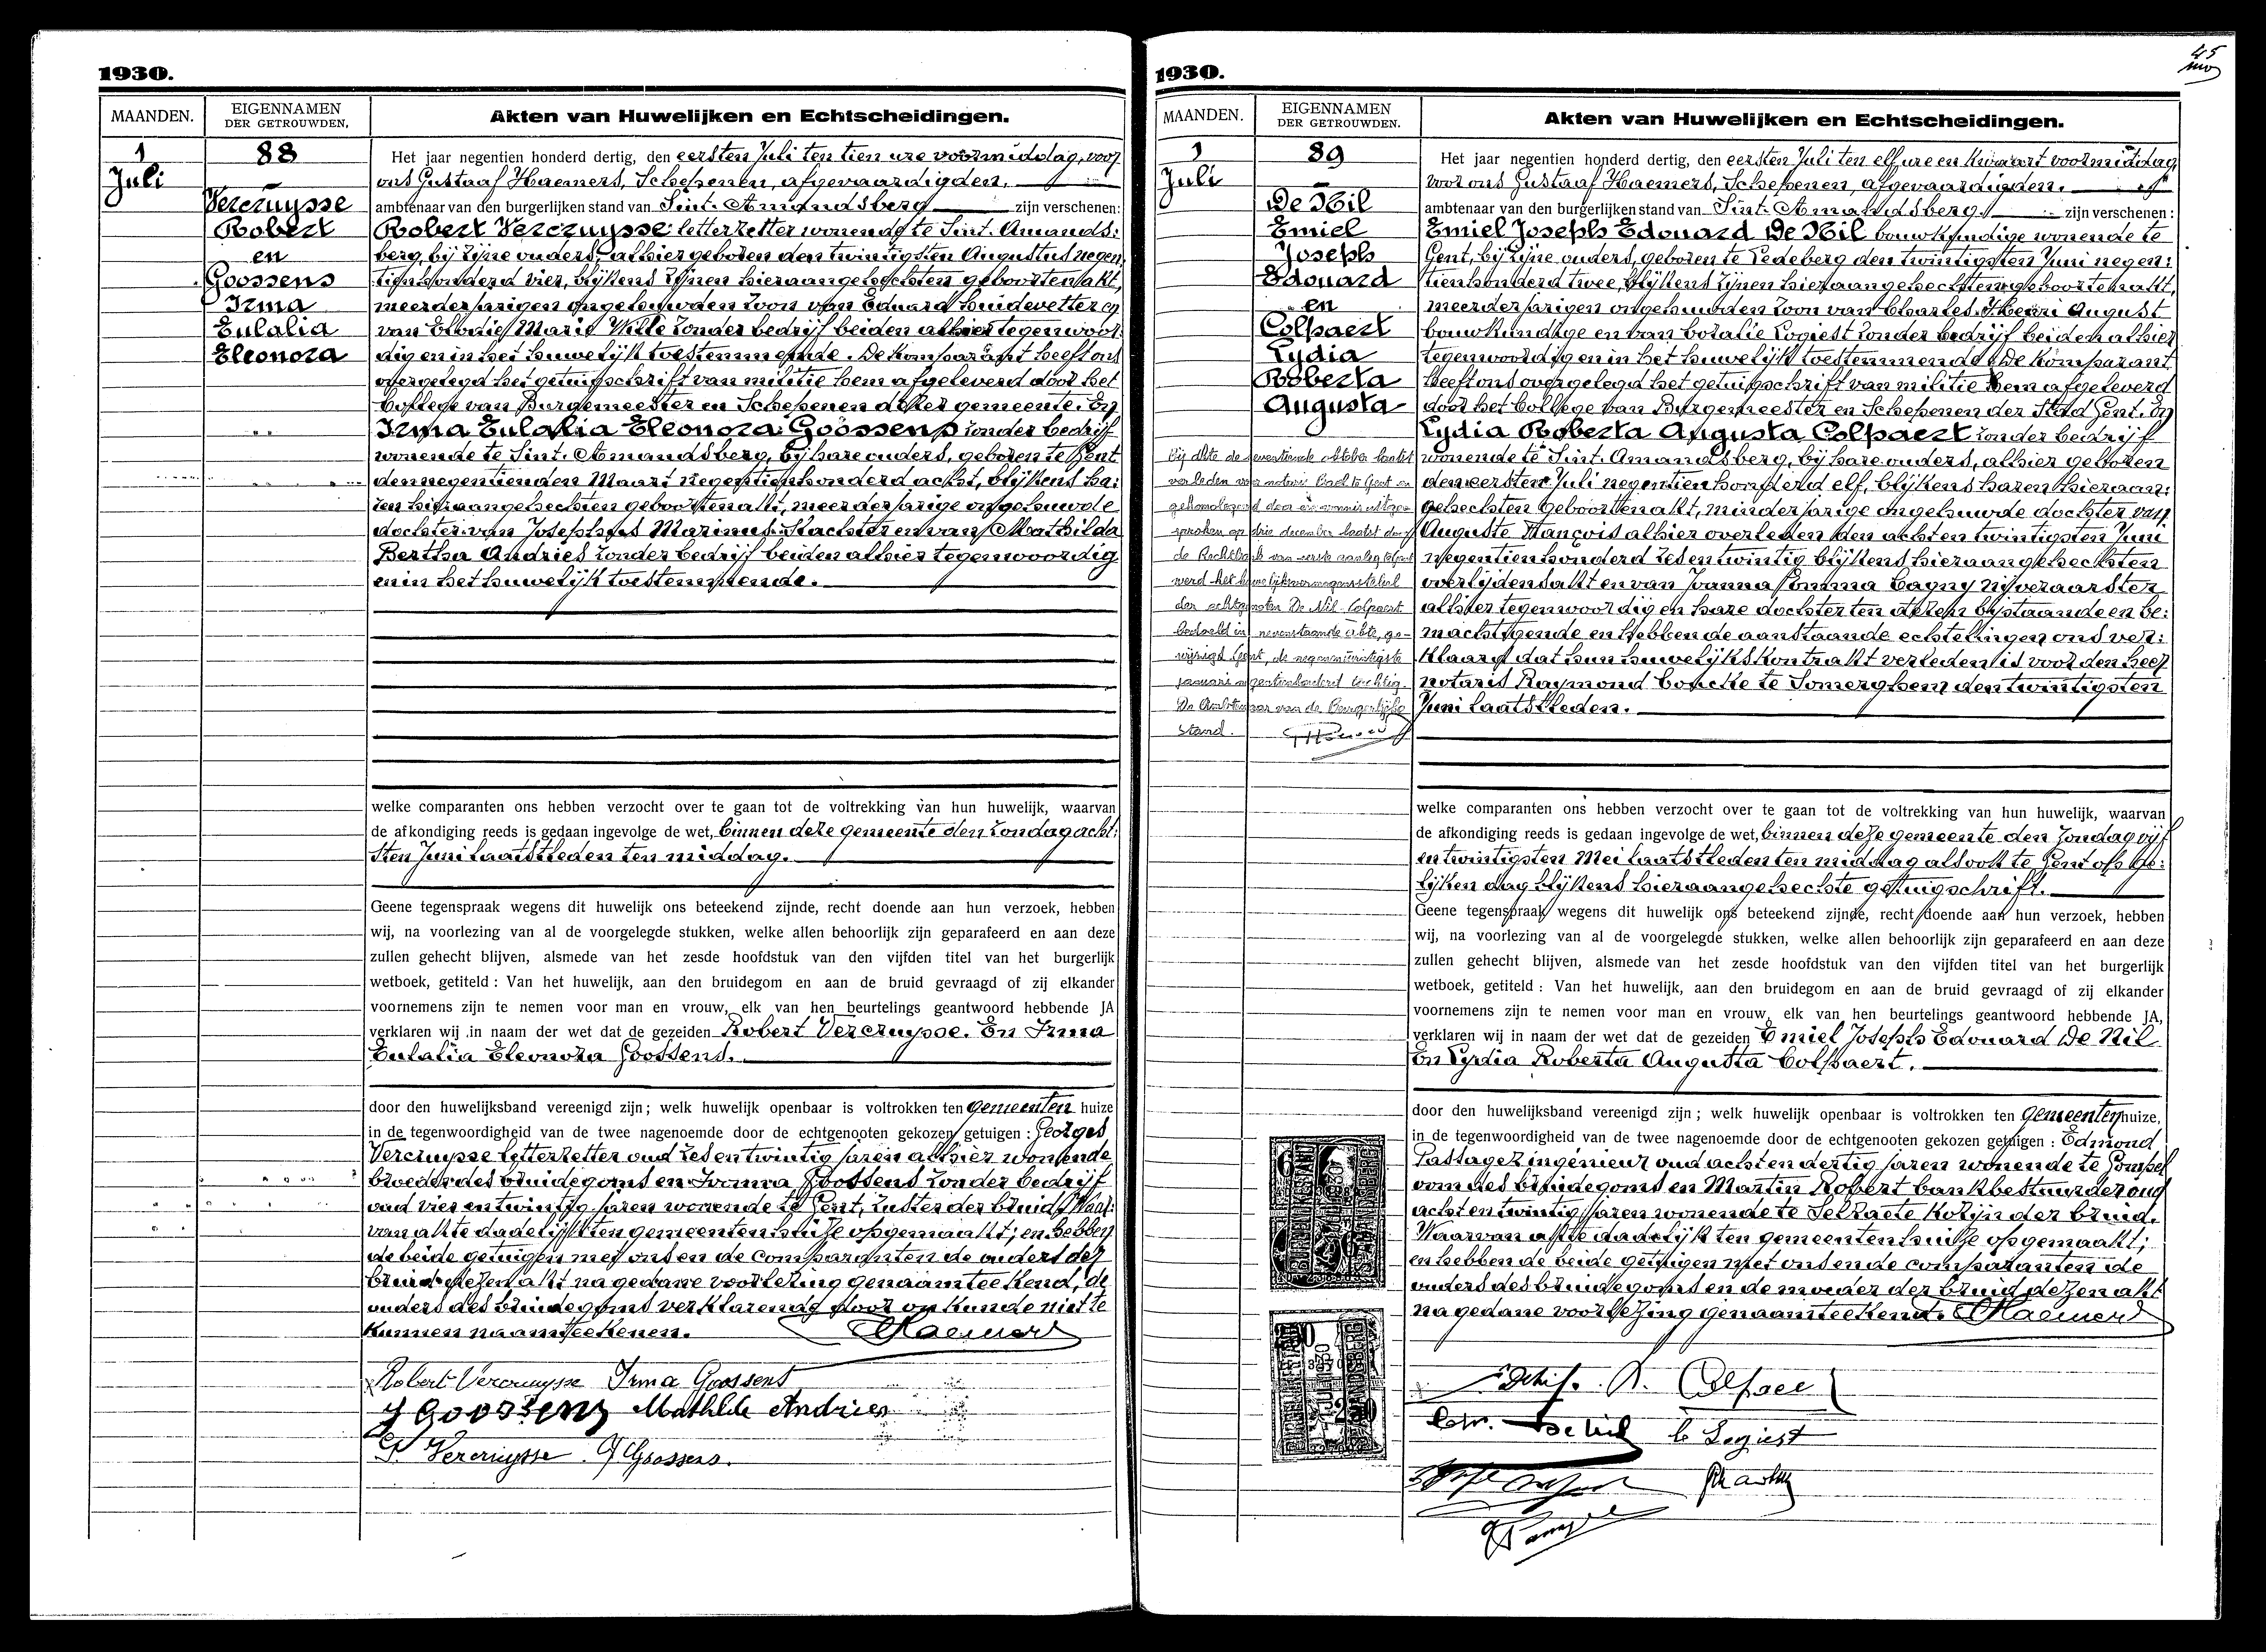 1930.
MAANDEN.
EIGENNAMEN
DER GETROUWDEN.
Akten van Huwelijken en Echtscheidingen.
1
Juli
88
Vercruysse
Robert
en
Goossens
Irma
Eulalia
Eleonora
Het jaar negentien honderd dertig, den eersten Juli ten tien ure voormiddag, voor
ons Gustaaf Haemers, Schepenen, afgevaardigden,
ambtenaar van den burgerlijken stand van Sint-Amandsberg zijn verschenen:
Robert Vercruysse letterzetter wonende te Sint-Amands:
berg, bij zijne ouders, alhier geboren den twintigsten Augustus negen
tienhonderd vier, blijkens zijnen hieraangehechten geboortenakt,
meerderjarigen ongehuwden zoon van Eduard huidevetter en
van Elodie Marie Wille zonder bedrijf beiden alhier tegenwoor
dig en in het huwelijk toestemmende. De komparant heeft ons
overgelegd het getuigschrift van militie hem afgeleverd door het
College van Burgemeester en Schepenen dezer gemeente. En
Irma Eulalia Eleonora Goossens zonder bedrijf
wonende te Sint-Amandsberg, bij hare ouders, geboren te Gent
den negentienden Maart negentienhonderd acht, blijkens ha:
ren hieraangehechten geboortenakt, meerderjarige ongehuwde
dochter van Josephus Marinus Slachter en van Mathilda
Bertha Andries zonder bedrijf beiden alhier tegenwoordig
en in het huwelijk toestemmende.
welke comparanten ons hebben verzocht over te gaan tot de voltrekking van hun huwelijk, waarvan
de afkondiging reeds is gedaan ingevolge de wet, binnen deze gemeente den zondag acht:
sten Juni laatstleden ten middag.
Geene tegenspraak wegens dit huwelijk ons beteekend zijnde, recht doende aan hun verzoek, hebben
wij, na voorlezing van al de voorgelegde stukken, welke allen behoorlijk zijn geparafeerd en aan deze
zullen gehecht blijven, alsmede van het zesde hoofdstuk van den vijfden titel van het burgerlijk
wetboek, getiteld : Van het huwelijk, aan den bruidegom en aan de bruid gevraagd of zij elkander
voornemens zijn te nemen voor man en vrouw, elk van hen beurtelings geantwoord hebbende JA
verklaren wij in naam der wet dat de gezeiden Robert Vercruysse. En Irma
Eulalia Eleonora Goossens.
door den huwelijksband vereenigd zijn; welk huwelijk openbaar is voltrokken ten gemeenten huize
in de tegenwoordigheid van de twee nagenoemde door de echtgenooten gekozen getuigen : Georges
Vercruysse letterzetter oud zes en twintig jaren alhier wonende
broeder des bruidegoms en Ivonna Goossens zonder bedrijf
oud vier en twintig jaren wonende te Gent, zuster der bruid. Waar:
van akte dadelijk ten gemeentenhuize opgemaakt; en hebben
de beide getuigen met ons en de comparanten de ouders der
bruid dezen akt na gedane voorlezing genaamteekend, de
ouders des bruidegoms verklarende door onkunde niet te
kunnen naamteekenen. Haemers
Robert Vercruysse Irma Goossens
J Goossens Mathilde Andries
G Vercruysse J Goossens.
45
1930.
MAANDEN.
EIGENNAMEN
DER GETROUWDEN.
Akten van Huwelijken en Echtscheidingen.
1
Juli
89
De Nil
Emiel
Joseph
Edouard
en
Colpaert
Lydia
Roberta
Augusta
Bij akte de seventiende oktober laatst
verleden voor notaris Bael te Gent en
gehomologeerd door een vonnis uitge-
sproken op drie december laatst door
de Rechtbank van eerste aanleg te Gent
werd het huwelijksvermogensstelsel
der echtgenoten De Nil-Colpaert
bedoeld in nevenstaande akte, ge-
wijzigd. Gent, de negenentwintigste
januari negentienhonderd tachtig.
De Ambtenaar van de Burgerlijke
Stand.
Het jaar negentien honderd dertig, den eersten Juli ten elf ure en kwaart voormiddag
voor ons Gustaaf Haemers, Schepenen, afgevaardigden,
ambtenaar van den burgerlijken stand van Sint-Amandsberg zijn verschenen :
Emiel Joseph Edouard De Nil bouwkundige wonende te
Gent, bij zijne ouders, geboren te Ledeberg den twintigsten Juni negen:
tienhonderd twee, blijkens zijnen hieraangehechten geboortenakt,
meerderjarigen ongehuwden zoon van Charles Henri August
bouwkundige en van Coralie Logiest zonder bedrijf beiden alhier
tegenwoordig en in het huwelijk toestemmende. De komparant
heeft ons overgelegd het getuigschrift van militie hem afgeleverd
door het College van Burgemeester en Schepenen der Stad Gent. En
Lydia Roberta Augusta Colpaert zonder bedrijf
wonende te Sint-Amandsberg, bij hare ouders, alhier geboren
den eersten Juli negentienhonderd elf, blijkens haren hieraan:
gehechten geboortenakt, minderjarige ongehuwde dochter van
Auguste François alhier overleden den acht en twintigsten Juni
negentienhonderd zes en twintig blijkens hieraangehechten
overlijdensakt en van Joanna Emma Cagny nijveraarster
alhier tegenwoordig en hare dochter ten dezen bijstaande en be:
machtigende en hebben de aanstaande echtelingen ons ver:
klaard dat hun huwelijkskontrakt verleden is voor den heer
notaris Raymond Coucke te Somerghem den twintigsten
Juni laatstleden.
welke comparanten ons hebben verzocht over te gaan tot de voltrekking van hun huwelijk, waarvan
de afkondiging reeds is gedaan ingevolge de wet, binnen deze gemeente den zondag vijf
en twintigsten Mei laatstleden ten middag alsook te Gent op ge:
lijken dag blijkens hieraangehechte getuigschrift.
Geene tegenspraak wegens dit huwelijk ons beteekend zijnde, recht doende aan hun verzoek, hebben
wij, na voorlezing van al de voorgelegde stukken, welke allen behoorlijk zijn geparafeerd en aan deze
zullen gehecht blijven, alsmede van het zesde hoofdstuk van den vijfden titel van het burgerlijk
wetboek, getiteld : Van het huwelijk, aan den bruidegom en aan de bruid gevraagd of zij elkander
voornemens zijn te nemen voor man en vrouw, elk van hen beurtelings geantwoord hebbende JA,
verklaren wij in naam der wet dat de gezeiden Emiel Joseph Edouard De Nil
En Lydia Roberta Augusta Colpaert.
door den huwelijksband vereenigd zijn; welk huwelijk openbaar is voltrokken ten gemeenten huize,
in de tegenwoordigheid van de twee nagenoemde door de echtgenooten gekozen getuigen : Edmond
Pastagez ingénieur oud acht en dertig jaren wonende te
oom des bruidegoms en Martin Robert bankbestuurder oud
acht en twintig jaren wonende te Selzaete kozijn der bruid.
Waarvan akte dadelijk ten gemeentenhuize opgemaakt;
en hebben de beide getuigen met ons en de comparanten de
ouders des bruidegoms en de moeder der bruid dezen akt
na gedane voorlezing genaamteekend. Haemers
Colpaert
De Nil C Logiest